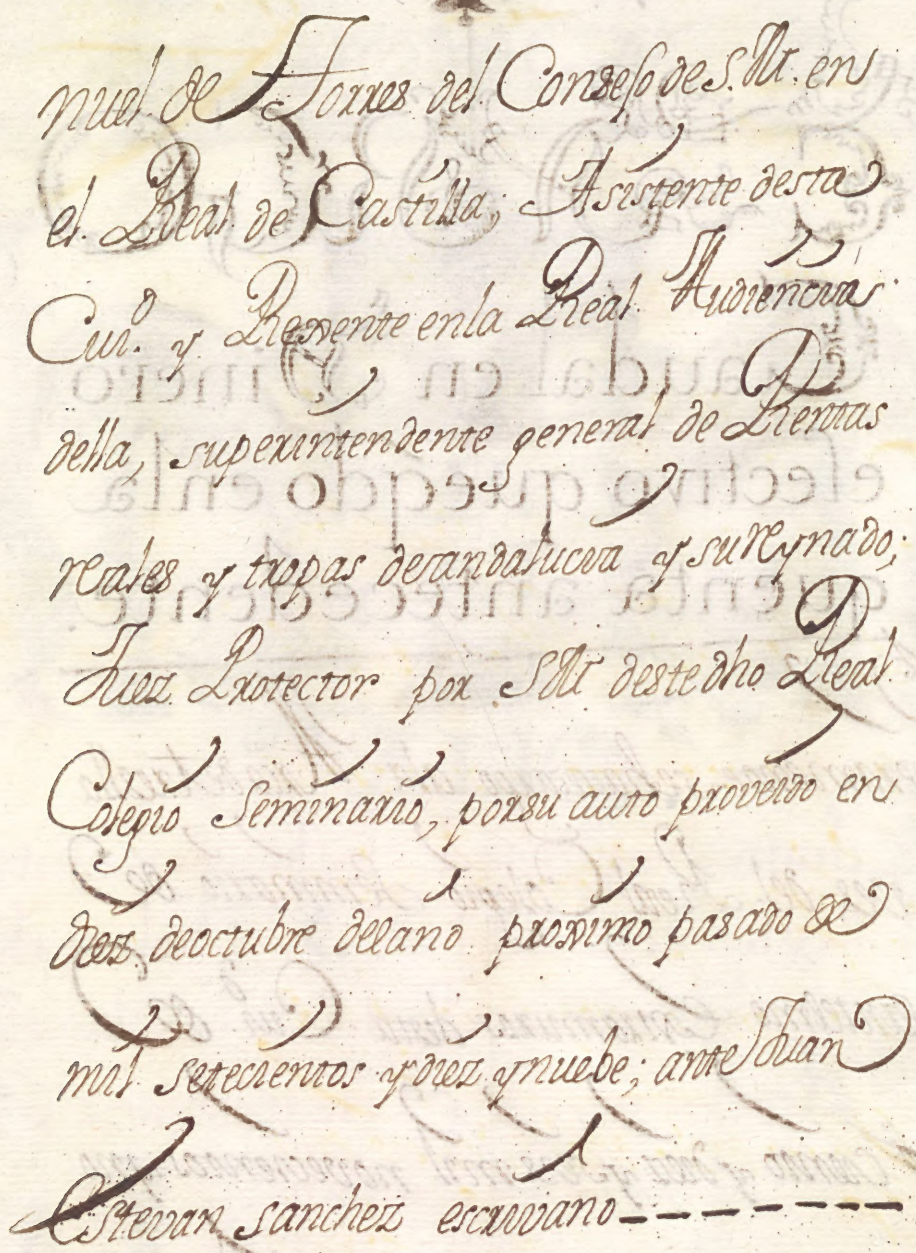 nuel de Torres del Consejo de S. M. en
el Real de Castilla; Asistente desta
Ciu.d y Rexente enla Real Audiencia
della, superintendente general de Rentas
reales y tropas desandalucia y su reynado;
Juez Protector por S M destedho Real
Colegio Seminario, porsu auto proveido en
diez deoctubre delaño proximo pasado de
mil setecientos ydiez ynuebe; ante Juan
Estevan sanchez escrivano